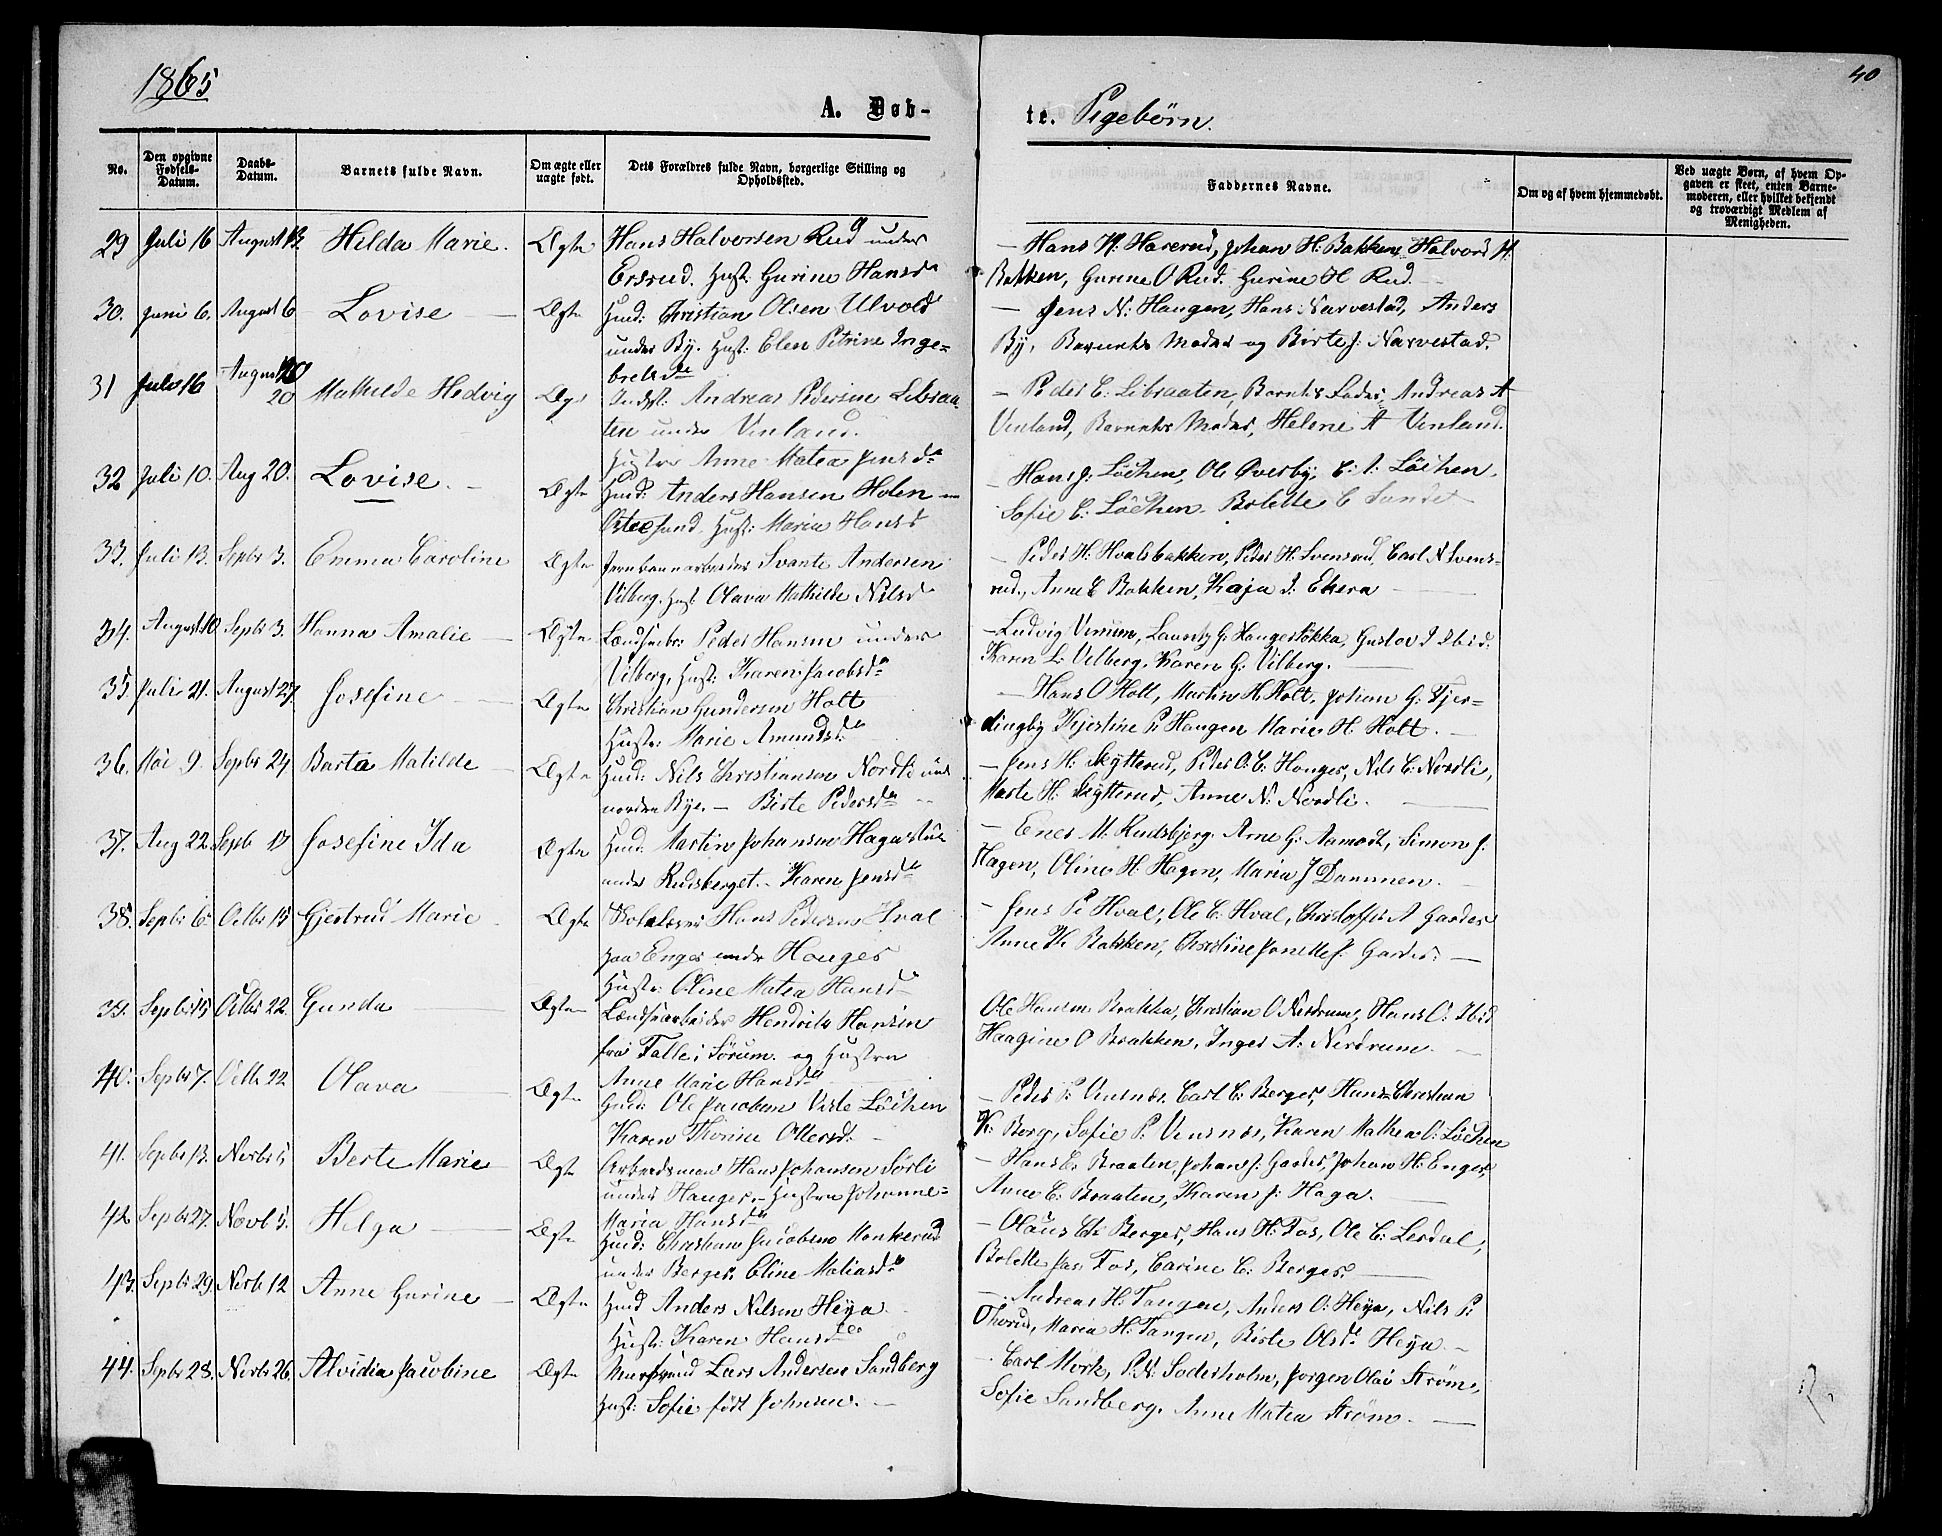 1865
40
A. Døb-
te. Pigebørn.
No.
Den opgivne Fødsels-Datum.
Daabs-Datum.
Barnets fulde Navn.
Om ægte eller uægte født.
Dets Forældres fulde Navn, borgerlige Stilling og Opholdssted.
Faddernes Navne.
Om og af hvem hjemmedøbt.
Ved uægte Børn, af hvem Opgaven er skeet, enten Barnemoderen, eller hvilket bekjendt og troværdigt Medlem af Menigheden.
29 Juli 16 August 13. Hilda Marie. Ægte Hans Halvorsen Rud under
Ersrud. Hust: Gurine Hansd
— Hans H: Harerud, Johan H: Bakken, Halvord H.
Bakken, Gurine O Rud. Gurine H Rud.
30. Juni 6. August 6 Lovise Ægte Husm: Christian Olsen Ulvold
under By. Hust: Elen Petrine Inge=
bretsd
— Jens N: Haugen, Hans Narvestad, Anders
By, Barnets Moder og Birte J: Narvestad.
31 Juli 16 August 20
20 Mathilde Hedvig Ægt Indst: Andreas Pedersen Libraa-
ten under Vinland.
Hustru Anne Matea Jensd
— Peder C. Libraaten, Barnets Fader, Andreas A
Vinland, Barnets Moder, Helene A Vinland.
32 Juli 10. Aug 20. Lovise. Ægte Husm: Anders Hansen Holen
Hust: Maria Hansd
— Hans J: Löchen, Ole Øverby, Löchen.
Sofie C: Löchen. Bolette C Sundet
33. Juli 13. Septbr 3. Emma Caroline Ægte Jernbanearbeider Svante Andersen
Vilberg, Hust Olava Mathilde Nilsd
— Peder H: Hvalsbakken, Peder H: Svensrud, Carl N Svens-
rud, Anne C Bakken, Kaja J. Ekern
34. August 10 Septbr 3. Hanna Amalie Ægte Peder Hansen under
Vilberg, Hust: Karen Jacobsd
— Ludvig Lauritz G: Haugerløkka, Gustav J Ibid.
Karen L: Vilberg. Karen G: Vilberg.
35 Juli 21. August 27. Josefine Ægte Christian Gundersen Holt
Hustr: Marie Amundsd
— Hans O Holt, Martin H. Holt, Johan G: Fjer=
dingby Kjerstine P: Haugen Marie H. Holt.
36. Mai 9. Septbr 24 Barta Matilde Ægte Husm: Nils Christiansen Nordli
nordre Bye. — Birte Pedersd
— Jens H: Skytterud, Peder O. C. Hauger, Nils C: Nordli,
Marte H: Skytterud, Anne N: Nordli.
37. Aug 22. Septb 17 Josefine Ida Ægte Husm: Martin Johansen Hagastue
under Rudsberget. Karen Jensd
— Enes M. Rudsbjerg, Arne G: Aamodt, Simon J:
Hagen, Oline H: Hagen, Maria J Dammen.
38. Septbr 6 Octbr 15 Gjertrud Marie Ægte Skolelærer Hans Pedersen Hval
paa Enger under Hauger
Hustr: Oline Matea Hansd
— Jens P: Hval, Ole C: Hval, Christoffer A Garder
Anne K: Bakken, Christine Jonette J: Garder:
39. Septbr 15 Octbr 22. Gunda Ægte Hendrik Hansen
fra Falle i Sörum. og Hustru
Anne Marie Hansd
Ole Hansen Brakka, Christian O Nerdrum, Hans O: Ibid
Haagine O Brakken, Inger A: Nerdrum.
40. Septbr 7. Octb 22 Olava Ægte Husm: Ole Jacobsen Löchen
Karen Thorine Ollersd:
— Peder P: Vensnæs, Carl C: Berger, Hans Christian
K: Berg, Sofie P: Vensnæs, Karen Mathea O: Löchen
41. Septbr 13. Novbr 5 Berte Marie Ægte Arbeidsmand Hans Johansen Sörli
under Hauger. Hustru Johanne=
Maria Hansd
— Hans E. Braaten, Johan J: Garder, Johan H: Enger,
Anne C: Braaten, Karen J: Haga.
42 Septbr 27. Novb 5. Helga Ægte Husm: Christian Jacobsen Monkerud
under Berger. Eline Matiasd
— Olaus Ch: Berger, Hans H: Fos, Ole C: Lerdal,
Bolette Jac: Fos, Carine C: Berger.
43. Septbr 29. Novb 12 Anne Gurine Ægte Husm Anders Nilsen Heya
Hust: Karen Hansd
— Andreas H: Tangen, Anders O: Heya, Nils P:
Thorud, Maria H: Tangen, Birte Olsd: Heya.
44. Septbr 28. Novbr 26. Alvidia Jacobine Ægte Lars Andersen Sandberg
Hust: Sofie född Johnsen.
Carl Mörk, P. N: Soderholm, Jörgen Olai Ström,
Sofie Sandberg, Anne Matea Ström.